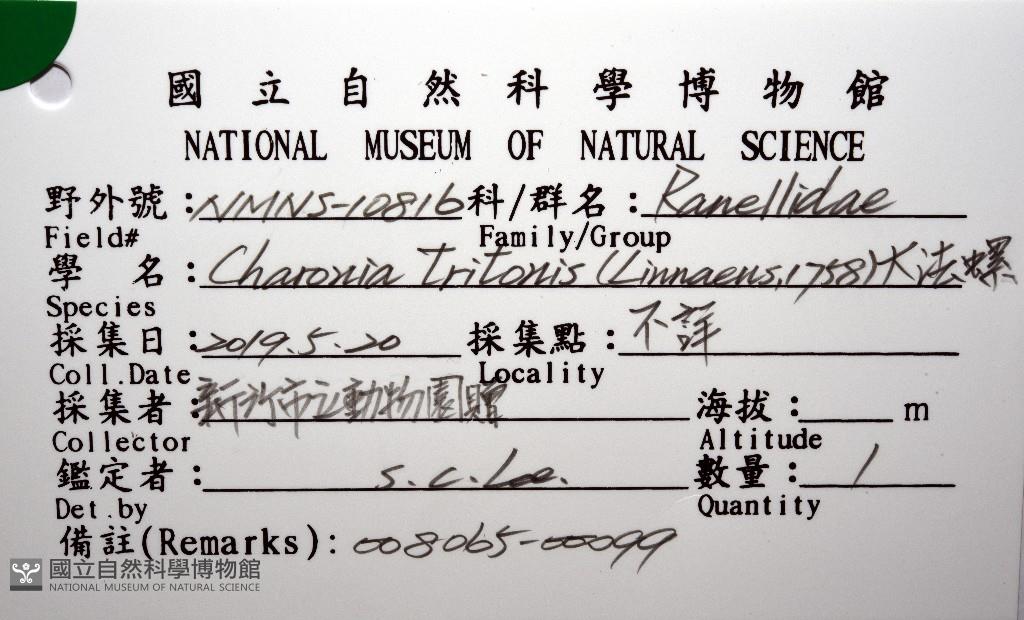 國立自然科學博物館
NATIONAL MUSEUM OF NATURAL SCIENCE
野外號:NMNS-10816 科/群名:Ranellidae
Field# Family/Group
學 名:Charonia tritonis (Linnaeus,1758)大法螺
Species
採集日:2019.5.20 採集點:不詳
Coll.Date Locality
採集者:新竹市立動物園贈 海拔: m
Collector Altitude
鑑定者:S.C.Lee. 數量:1
Det.by Quantity
備註(Remarks):008065-00099
國立自然科學博物館
NATIONAL MUSEUM OF NATURAL SCIENCE